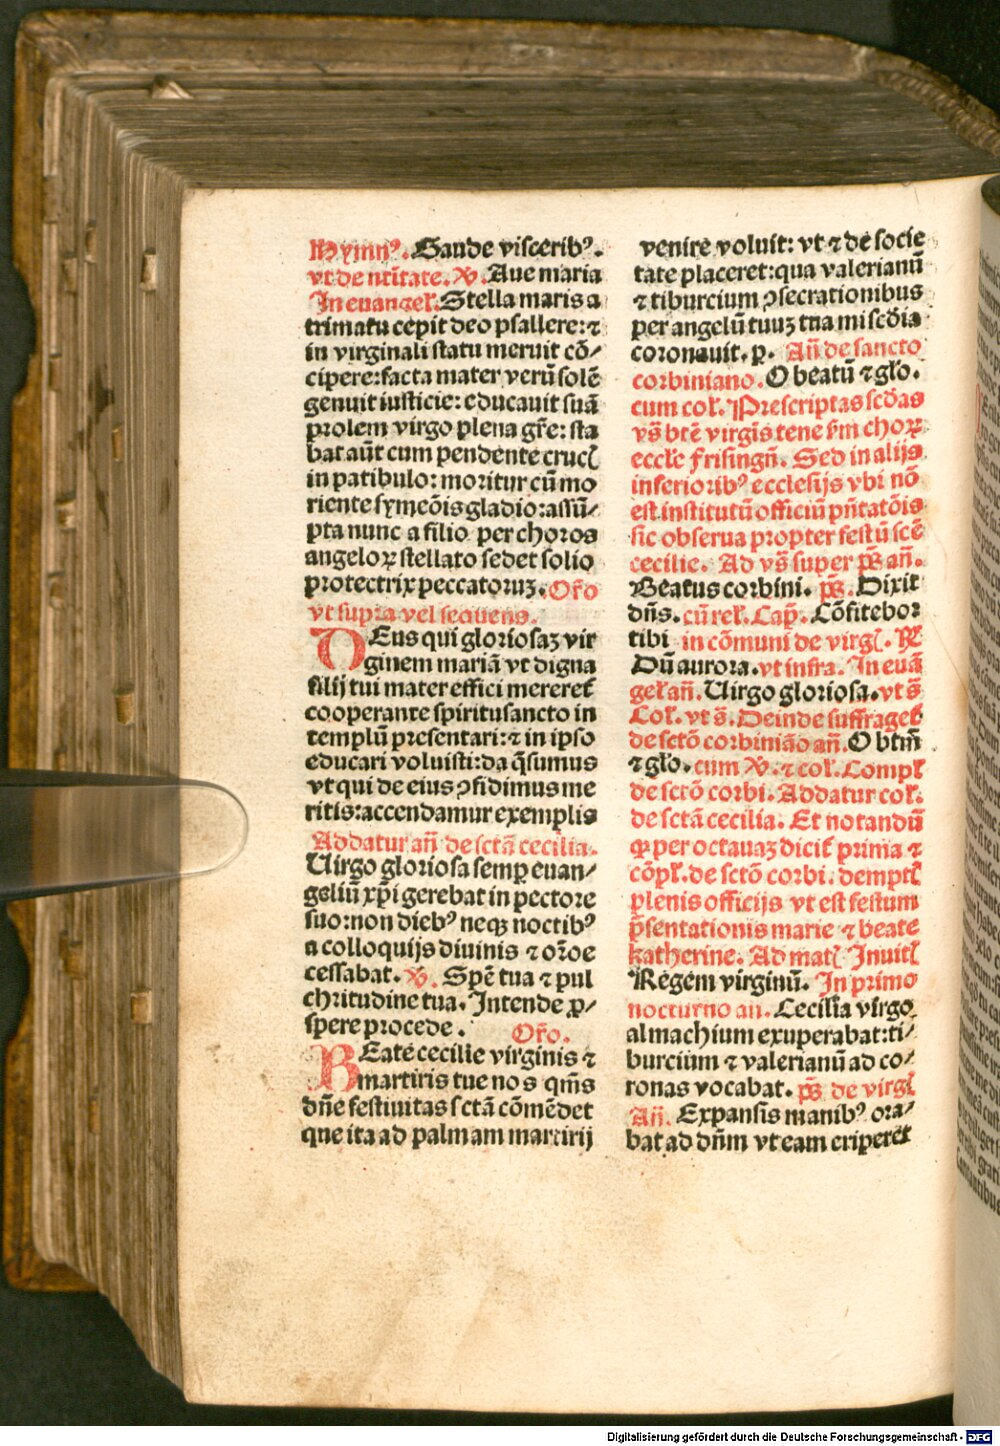 Hymnꝰ. Gaude visceribꝰ.
vt de nt̄itate. ℣. Aue maria
In euangeł. Stella maris a
trimatu cepit deo psallere: ⁊
in virginali statu meruit cō⸗
cipere: facta mater verū solē
genuit iusticie: educauit suā
prolem virgo plena gr̄e: sta
bat aūt cum pendente cruci
in patibulo: moritur cū mo
riente symeōis gladio: assū⸗
pta nunc a filio per choros
angeloꝝ stellato sedet solio
protectrix peccatoruꝫ. Oŕo
vt supra vel sequens.
DEus qui gloriosaꝫ vir
ginem mariā vt digna
filij tui mater effici mereret̄
cooperante spiritusancto in
templū presentari: ⁊ in ipso
educari voluisti: da q̄sumus
vt qui de eius ꝯfidimus me
ritis: accendamur exemplis
Addatur an̄ de sctā cecilia.
Uirgo gloriosa semꝑ euan⸗
geliū xp̄i gerebat in pectore
suo: non diebꝰ neqꝫ noctibꝰ
a colloquijs diuinis ⁊ or̄oe
cessabat. ℣. Spē tua ⁊ pul
chritudine tua. Intende ꝓ⸗
spere procede. Oŕo.
BEate cecilie virginis ⁊
martiris tue nos qm̄s
dn̄e festiuitas sctā cōmēdet
que ita ad palmam martirij
venire voluit: vt ⁊ de socie
tate placeret: qua valerianū
⁊ tiburcium ꝯsecrationibus
per angelū tuuꝫ tua mis̄cdia
coronauit. p. An̄ de sancto
corbiniano. O beatū ⁊ glo.
cum coł. Prescriptas sc̄das
vs̄ btē virgis tene s̄m choꝝ
eccłe frisingn̄. Sed in alijs
inferioribꝰ ecclesijs vbi nō
est institutū officiū pn̄tatōis
sic obserua propter festū scē
cecilie. Ad vs̄ super ps̄ an̄.
Beatus corbini. ps̄. Dixit
dn̄s. cū reł. Cap̄. Cōfitebor
tibi in cōmuni de virgi. ℟
Dū aurora. vt infra. In euā
geł an̄. Uirgo gloriosa. vt s̄
Coł. vt s̄. Deinde suffraget̄
de sctō corbiniāo an̄. O btm̄
⁊ glo. cum ℣. ⁊ coł. Compł
de sctō corbi. Addatur coł.
de sctā cecilia. Et notandū
ꝙ per octauaꝫ dicit̄ prima ⁊
cōpł. de sctō corbi. demptꝭ
plenis officijs vt est festum
p̄sentationis marie ⁊ beate
katherine. Ad mat̄ Inuit̄
Regem virginū. In primo
nocturno an. Cecilia virgo
almachium exuperabat: ti⸗
burcium ⁊ valerianū ad co⸗
ronas vocabat. ps̄ de virgi
An̄. Expansis manibꝰ ora⸗
bat ad dn̄m vt eam eriperet
Digitalisierung gefördert durch die Deutsche Forschungsgemeinschaft - DFG